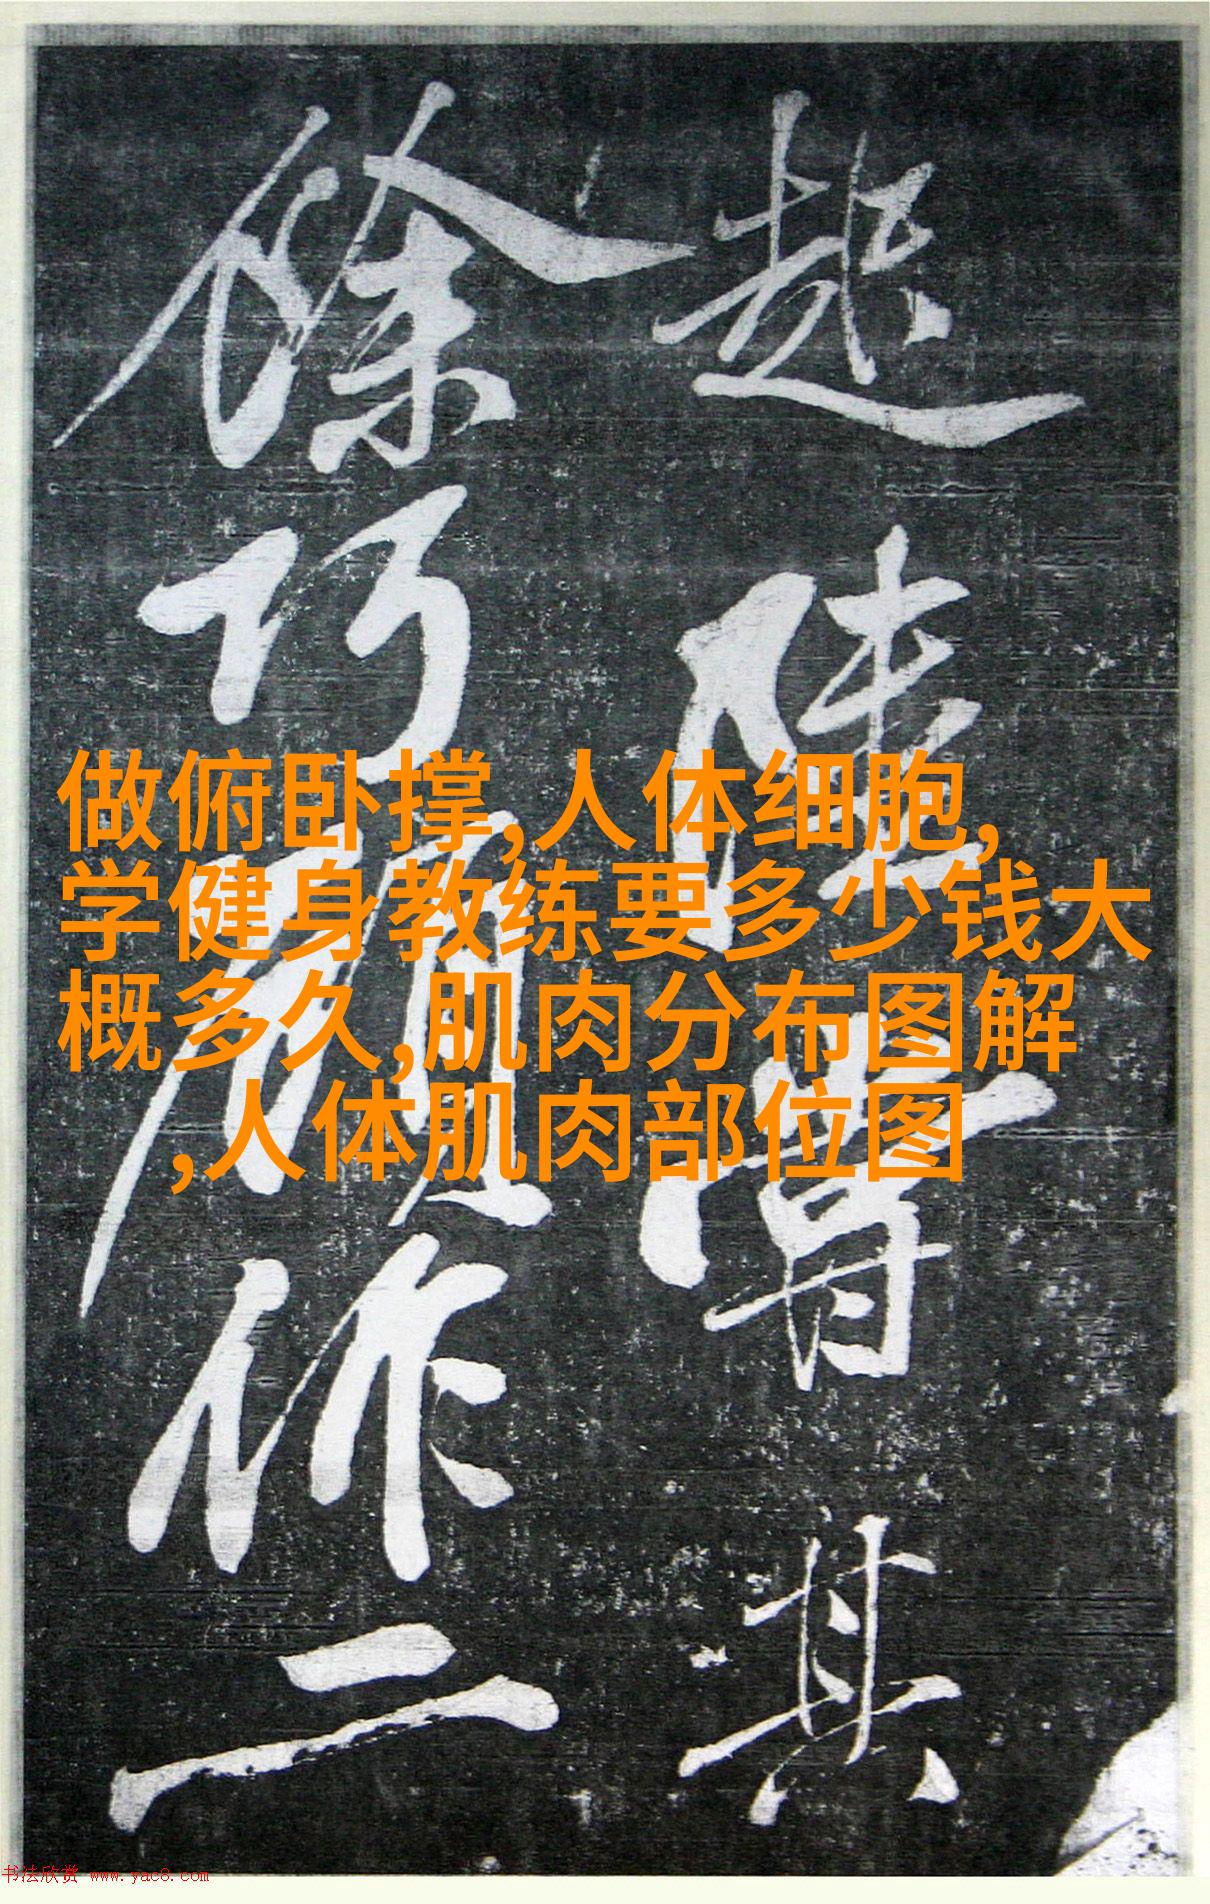 趂陸賈其
餘巧願作二
做俯卧撑,人体细胞,
学健身教练要多少钱大
概多久,肌肉分布图解
,人体肌肉部位图
书法欣赏 www.yac8.com